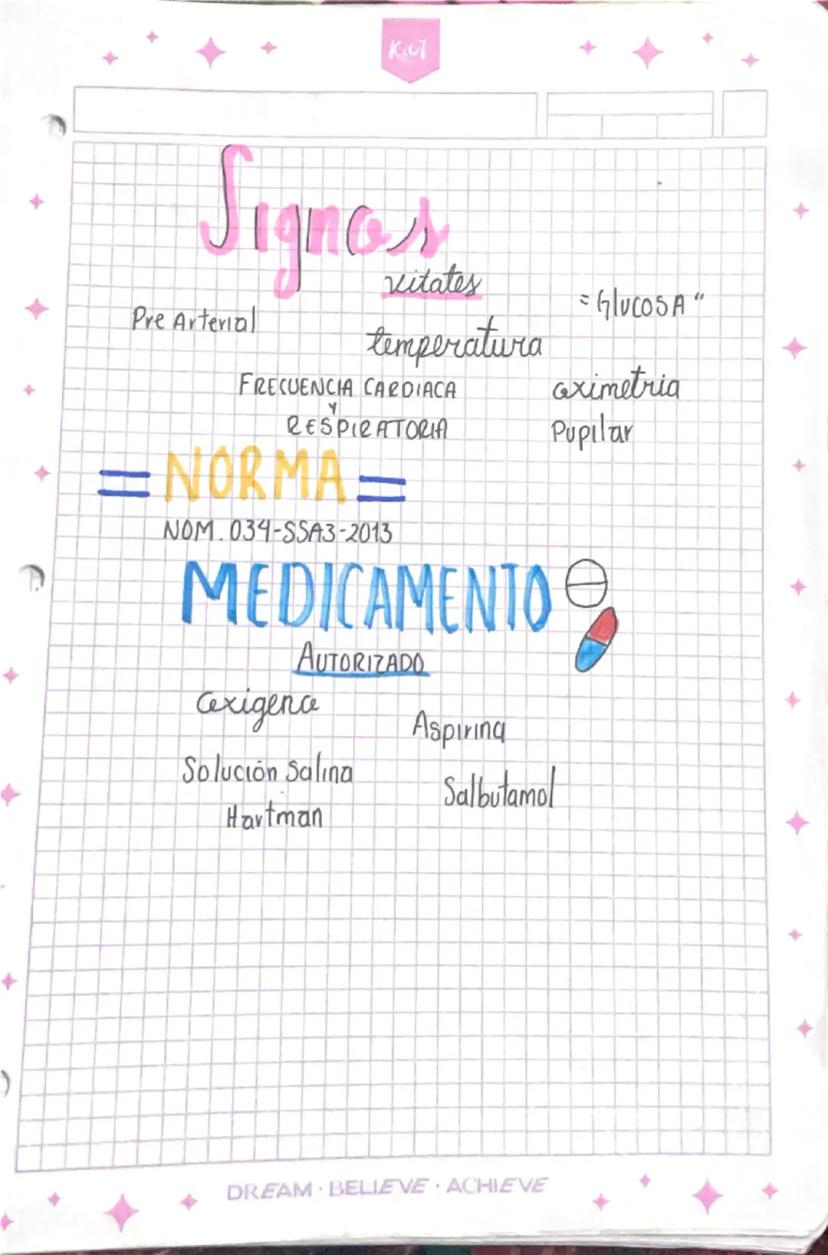 Kiut
Signos
vitales
"Glucosa"
Pre Arterial
temperatura
FRECUENCIA CARDIACA
oximetria
Y
RESPIRATORIA
Pupilar
= NORMA =
NOM. 034-SSA3-2013
MEDICAMENTO
AUTORIZADO
oxigeno
Aspirina
Solución Salina
Salbutamol
Hartman
DREAM · BELIEVE · ACHIEVE